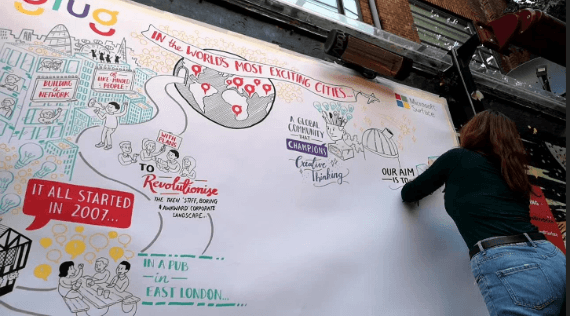 glug
IN the WORLD'S MOST EXCITING CITIES...
Microsoft
Surface
BUILDING
A
NETWORK
OF
LIKE MINDED
PEOPLE
A GLOBAL
COMMUNITY
THAT
CHAMPIONS
Creative
Thinking
OUR AIM
IS TO
WITH
PLANS
TO
Revolutionise
THE THEN 'STIFF, BORING
& AWKWARD CORPORATE
LANDSCAPE...
IT ALL STARTED
IN 2007...
IN A PUB
in
EAST LONDON...